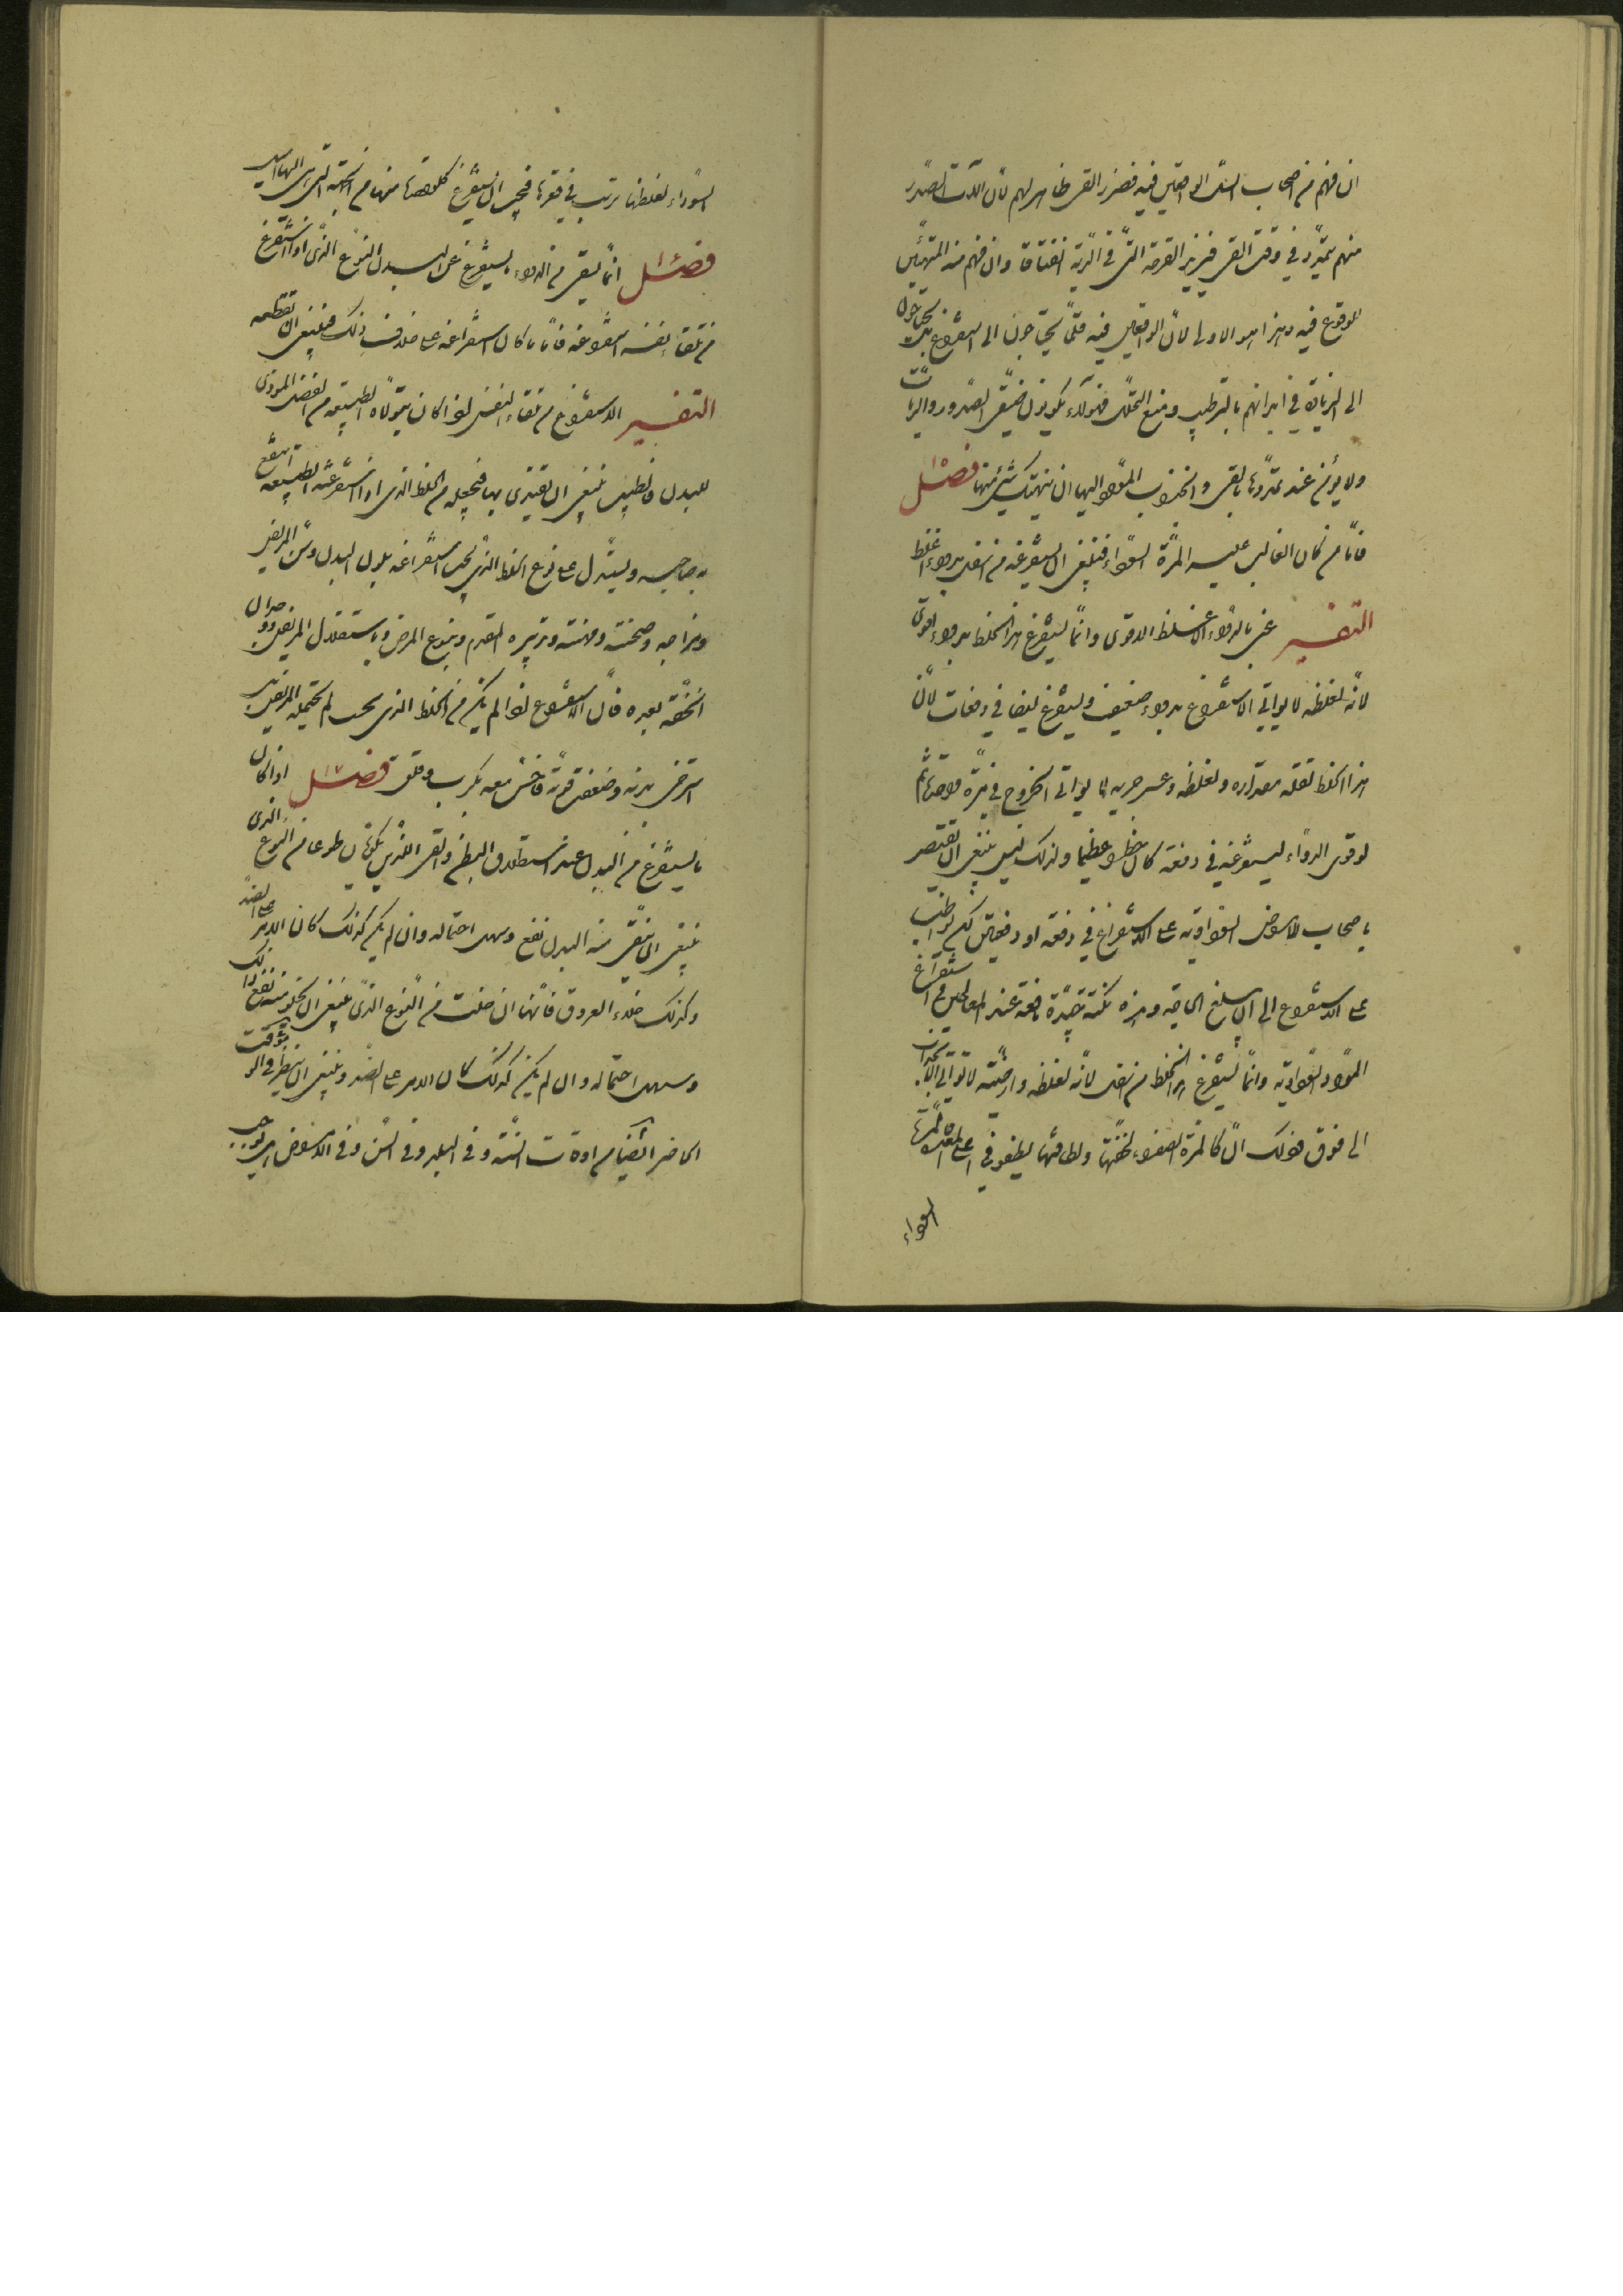 ان فهم من اصحاب السل الواقعين فيه فضرر القى ظاهر لهم لان آلات الصدر
منهم تتمدد فى وقت القى فيزيد القرحة التى فى الرية انفتاقا وان فهم منه المتهيئين
للوقوع فيه وهذا هو الاولى لان الواقعين فيه قلما يحتاجون الى استفراغ بل يحتاجون
الى الزيادة فى ابدانهم بالترطيب ومنع التحلل فهؤلاء يكونون ضيقى الصدور والريات
ولا يؤمن عند تمددها بالقى وانجذاب المواد اليها ان ينهتك شئ منها فصل
فاما من كان الغالب عليه المرة السوداء فينبغى ان يستفرغه من اسفل بدواء اغلظ
التفسير عنى بالدواء الاغلظ الاقوى وانما يستفرغ هذا الخلط بدواء اقوى
لانه لغلظه لا يواتى الاستفراغ بدواء ضعيف ويستفرغ ايضا فى دفعات لان
هذا الخلط لقلة مقداره ولغلظه وعسر جريه لا يواتى الخروج فى مرة واحدة ثم
لو قوى الدواء ليستفرغه فى دفعة كان خطرا عظيما ولذلك ليس ينبغى ان يقتصر
باصحاب الامراض السوداوية على الاستفراغ فى دفعة او دفعتين لكن يواظب
على الاستفراغ الى ان يبلغ الحاجة وهذه نكتة جيدة نافعة عند المعالجين فى استفراغ
المواد السوداوية وانما يستفرغ هذا الخلط من اسفل لانه لغلظه وارضيته لا يواتى الانجذاب
الى فوق هونك ان كالمرة الصفراء لخفتها ولطافتها يطفو فى اعلى المعدة
السوداء
السوداء لغلظها ترسب فى قعرها فيجب ان يستفرغ كل واحدة منها من الجهة التى هى اليها اميل
فصل انما يبقى من الدواء ما يستفرغ عن البدن النوع الذى اذا استفرغ
من تلقاء نفسه استفراغه فاما ما كان استفراغه على خلاف ذلك فينبغى ان تقطعه
التفسير الاستفراغ من تلقاء النفس اذا كان يتولاه الطبيعة من الفضل المؤذى
للبدن فالطبيب ينبغى ان يقتدى بها فيجعله من الخلط الذى اذا استفرغته الطبيعة انتفع
به صاحبه ويستدل على نوع الخلط الذى يجب استفراغه بلون البدن وسن المريض
ومزاجه وسحنته ومهنته وتدبيره المتقدم وبنوع المرض وباستقلال المريض ووجدان
الخفة بعده فان الاستفراغ اذا لم يكن من الخلط الذى يجب لم يحتمله المريض بل
استرخى بدنه وضعفت قوته فاحس معه بكرب وقلق فصل اذا كان
ما يستفرغ من البدن عند استطلاق البطن والقى اللذين يكونان طوعا من النوع الذى
ينبغى ان ينقى منه البدن نفع وسهل احتماله وان لم يكن كذلك كان الامر على الضد
وكذلك خلاء العروق فانها ان خلت من النوع الذى ينبغى ان يخلو منه نفع ذلك
وسهل احتماله وان لم يكن كذلك كان الامر على الضد وينبغى ان ينظر فى الوقت
الحاضر ايضا من اوقات السنة وفى البلد وفى السن وفى الامراض هل يوجب